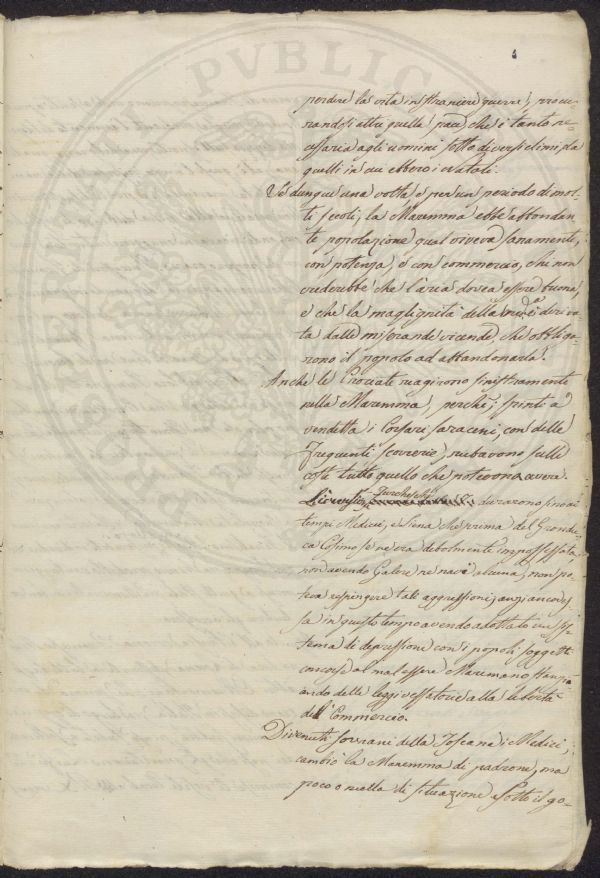 perdere la vita in straniere guerre, procu-
randosi altri quella pace, che è tanto ne-
cessaria agli uomini sotto diversi climi, da
quelli in cui ebbero i Natali.
Se dunque una volta e per un periodo di mol-
ti secoli, la Maremma ebbe abbondan-
te popolazione qual viveva sanamente,
con potenza, e con commercio, chi non
crederebbe che l'aria dovea essere buona,
e che la maglignità della med.a è deriva-
ta dalle miserande vicende, che obbliga-
rono il popolo ad abbandonarla!
Anche le Crociate reagirono sinistramente
nella Maremma, perchè, spinti a
vendetta i Corsari saraceni, con delle
frequenti scorrerie, rubavono sulle
coste tutto quello che potevono avere.
Turchesche
durarono sino ai
tempi Medicei, e Siena che prima del Grandu-
ca Cosimo se ne era debolmente impossessata,
non avendo Galere ne nave alcuna, non po-
teva respingere tali aggressioni; anzi ancor es-
sa in questo tempo avendo adottato un sis-
tema di depressione con i popoli soggetti
concorse al mal essere Maremmano stanzi-
ando delle leggi vessatorie alla libertà
del Commercio.
Divenuti Sovrani della Toscana i Medici,
cambiò la Maremma di padrone, ma
poco o nulla di situazione. Sotto il go-